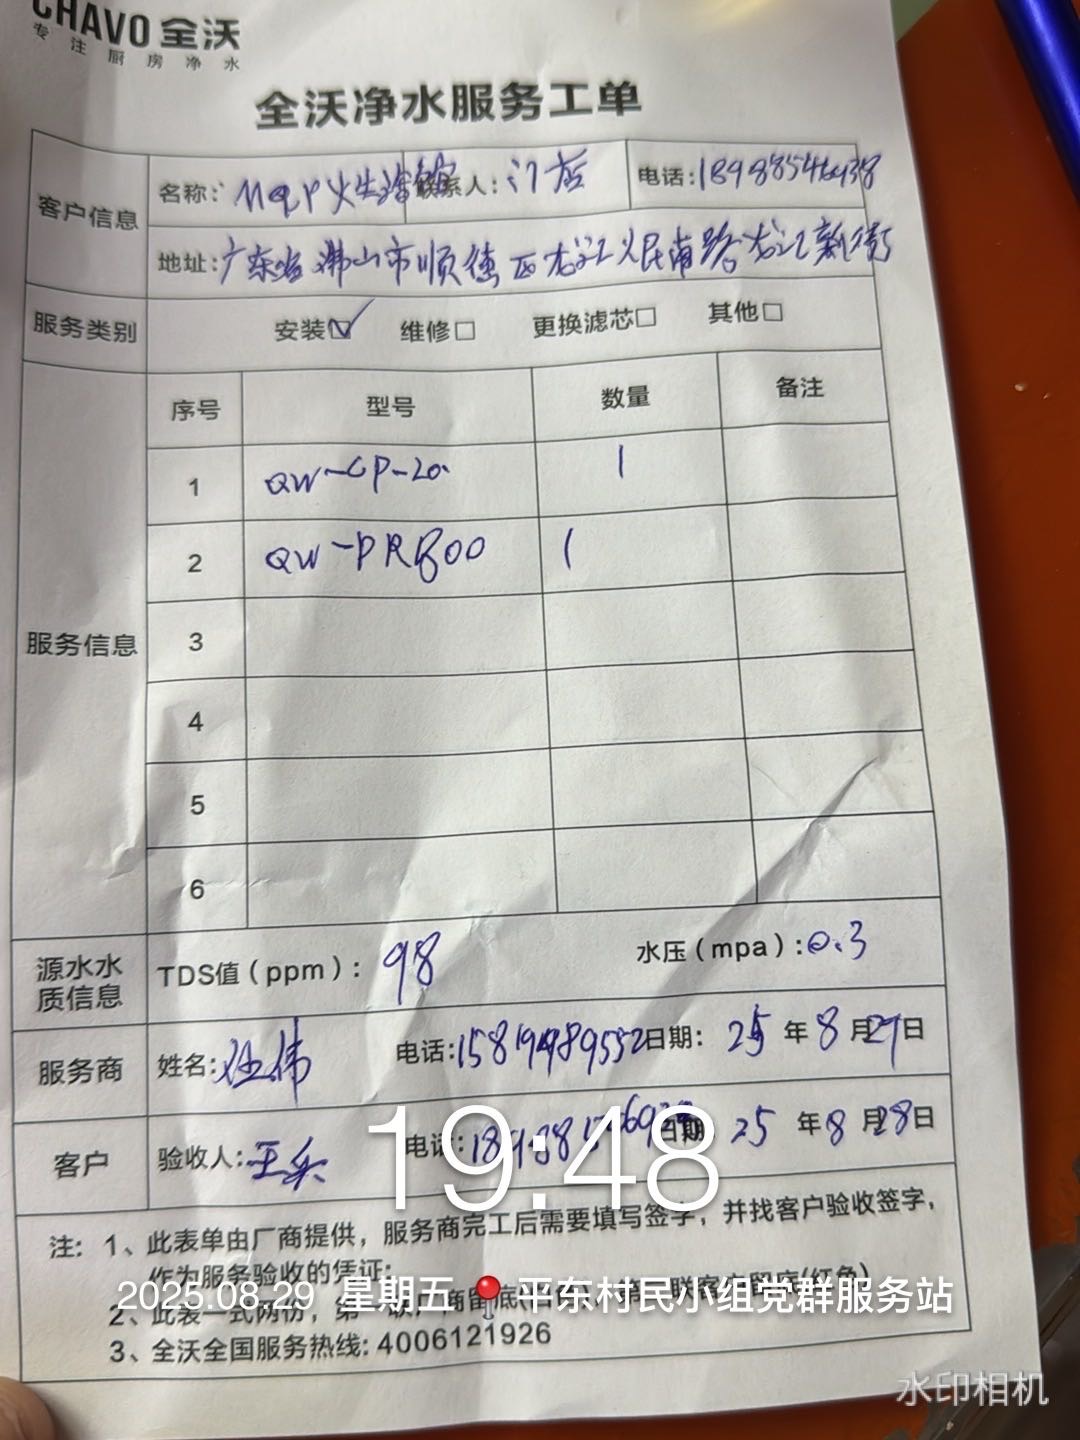 CHAVO 全沃
专注厨房净水
全沃净水服务工单
客户信息 名称: 联系人: 门店 电话:
地址: 广东省 佛山市顺德区龙江人民南路龙江新街
服务类别 安装☑ 维修□ 更换滤芯□ 其他□
服务信息
序号 型号 数量 备注
1 QW-CP-20 1
2 QW-PR800 1
3
4
5
6
源水水质信息 TDS值(ppm): 98 水压(mpa):0.3
服务商 姓名: 电话: 日期: 25年8月29日
客户 验收人: 电话: 日期: 25年8月28日
19:48
注: 1、此表单由厂商提供,服务商完工后需要填写签字,并找客户验收签字,
作为服务验收的凭证;
2025.08.29 星期五 平东村民小组党群服务站
2、此表一式两份,第一联
3、全沃全国服务热线: 4006121926
水印相机